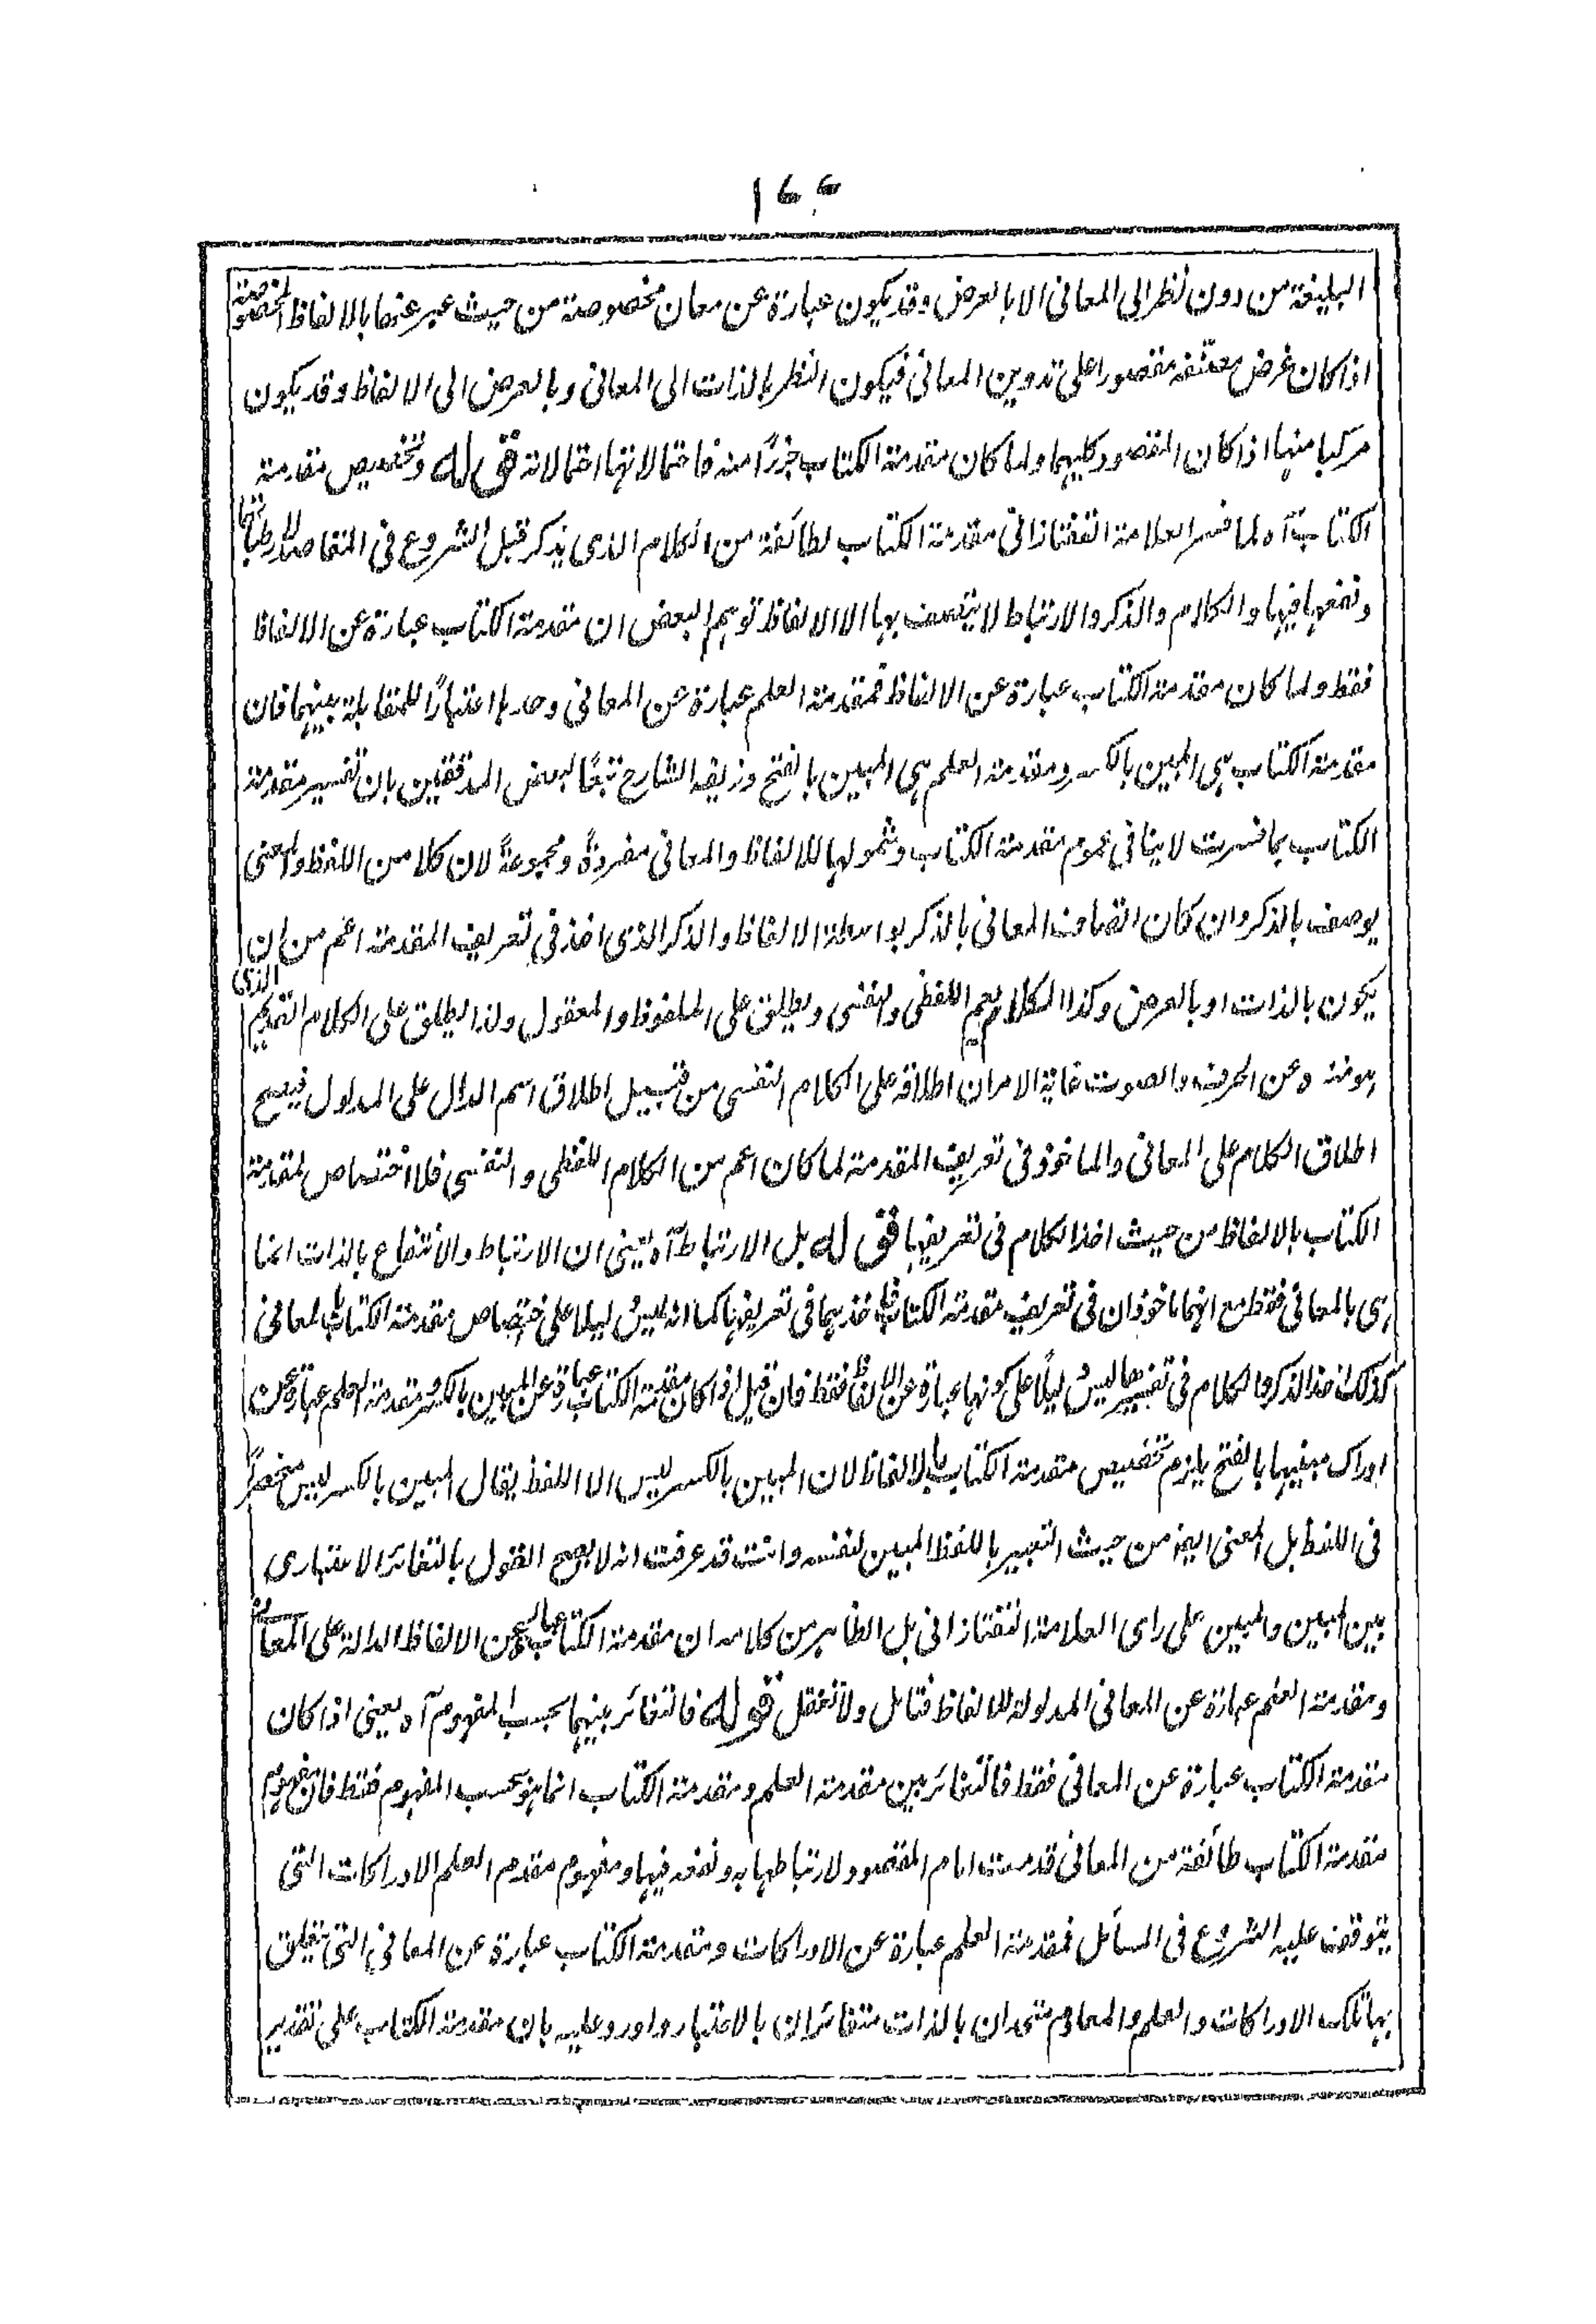 ١٦٦
البليغة من دون نظر الى المعانى الا بالعرض وقد يكون عبارة عن معان مخصوصة من حيث عبر عنها بالالفاظ المخصوصة
اذا كان غرض مصنفه مقصورا على تدوين المعانى فيكون النظر بالذات الى المعانى وبالعرض الى الالفاظ وقد يكون
مركبا منهما اذا كان المقصود كليهما ولما كان مقدمة الكتاب جزءًا منه فاحتمالاتها احتمالاته قوله وتخصيص مقدمة
الكتاب آه لما فسر العلامة التفتازانى مقدمة الكتاب لطائفة من الكلام الذى يذكر قبل الشروع فى المقاصد لارتباطها
ونفعها فيها والكلام والذكر والارتباط لا يتصف بها الا الالفاظ توهم البعض ان مقدمة الكتاب عبارة عن الالفاظ
فقط ولما كان مقدمة الكتاب عبارة عن الالفاظ فمقدمة العلم عبارة عن المعانى وحدها اعتبارًا للمقابلة بينهما فان
مقدمة الكتاب هى المبين بالكسر ومقدمة العلم هى المبين بالفتح وزيفه الشارح تبعًا لبعض المدققين بان تفسير مقدمة
الكتاب بما فسرت لا ينافى عموم مقدمة الكتاب وشمولها للالفاظ والمعانى مفردةً ومجموعةً لان كلا من اللفظ والمعنى
يوصف بالذكر وان كان اتصاف المعانى بالذكر بواسطة الالفاظ والذكر الذى اخذ فى تعريف المقدمة اعم من ان
يكون بالذات او بالعرض وكذا الكلام يعم اللفظى والنفسى ويطلق على الملفوظ والمعقول ولذا يطلق على الكلام القديم الذى
هو منزه عن الحرف والصوت غاية الامر ان اطلاقه على الكلام النفسى من قبيل اطلاق اسم الدال على المدلول فيصح
اطلاق الكلام على المعانى والماخوذ فى تعريف المقدمة لما كان اعم من الكلام اللفظى والنفسى فلا اختصاص لمقدمة
الكتاب بالالفاظ من حيث اخذ الكلام فى تعريفها قوله بل الارتباط آه يعنى ان الارتباط والانتفاع بالذات انما
هى بالمعانى فقط مع انهما ماخوذان فى تعريف مقدمة الكتاب فاخذهما فى تعريفها كما انه ليس دليلا على اختصاص مقدمة الكتاب بالمعانى
كذلك اخذ الذكر والكلام فى تفسيرها ليس دليلًا على كونها عبارة عن الالفاظ فقط فان قيل اذا كان مقدمة الكتاب عبارة عن المبين بالكسر ومقدمة العلم عبارة عن
ادراك مبنيها بالفتح يلزم تخصيص مقدمة الكتاب بالالفاظ لان المبين بالكسر ليس الا اللفظ يقال المبين بالكسر ليس منحصرًا
فى اللفظ بل المعنى ايضا من حيث التعبير باللفظ المبين لنفسه وانت قد عرفت انه لا يصح القول بالتغائر الاعتبارى
بين المبين والمبين على راى العلامة التفتازانى بل الظاهر من كلامه ان مقدمة الكتاب عبارة عن الالفاظ الدالة على المعانى
ومقدمة العلم عبارة عن المعانى المدلولة للالفاظ فتامل ولا تغفل قوله فالتغائر بينهما بحسب المفهوم آه يعنى اذا كان
مقدمة الكتاب عبارة عن المعانى فقط فالتغائر بين مقدمة العلم ومقدمة الكتاب انما هو بحسب المفهوم فقط فان مفهوم
مقدمة الكتاب طائفة من المعانى قدمت امام المقصود ولارتباطها به ونفعه فيها ومفهوم مقدم العلم الادراكات التى
يتوقف عليه الشروع فى المسائل فمقدمة العلم عبارة عن الادراكات ومقدمة الكتاب عبارة عن المعانى التى يتعلق
بها تلك الادراكات والعلم والمعلوم متحدان بالذات متغائران بالاعتبار واورد عليه بان مقدمة الكتاب على تقدير